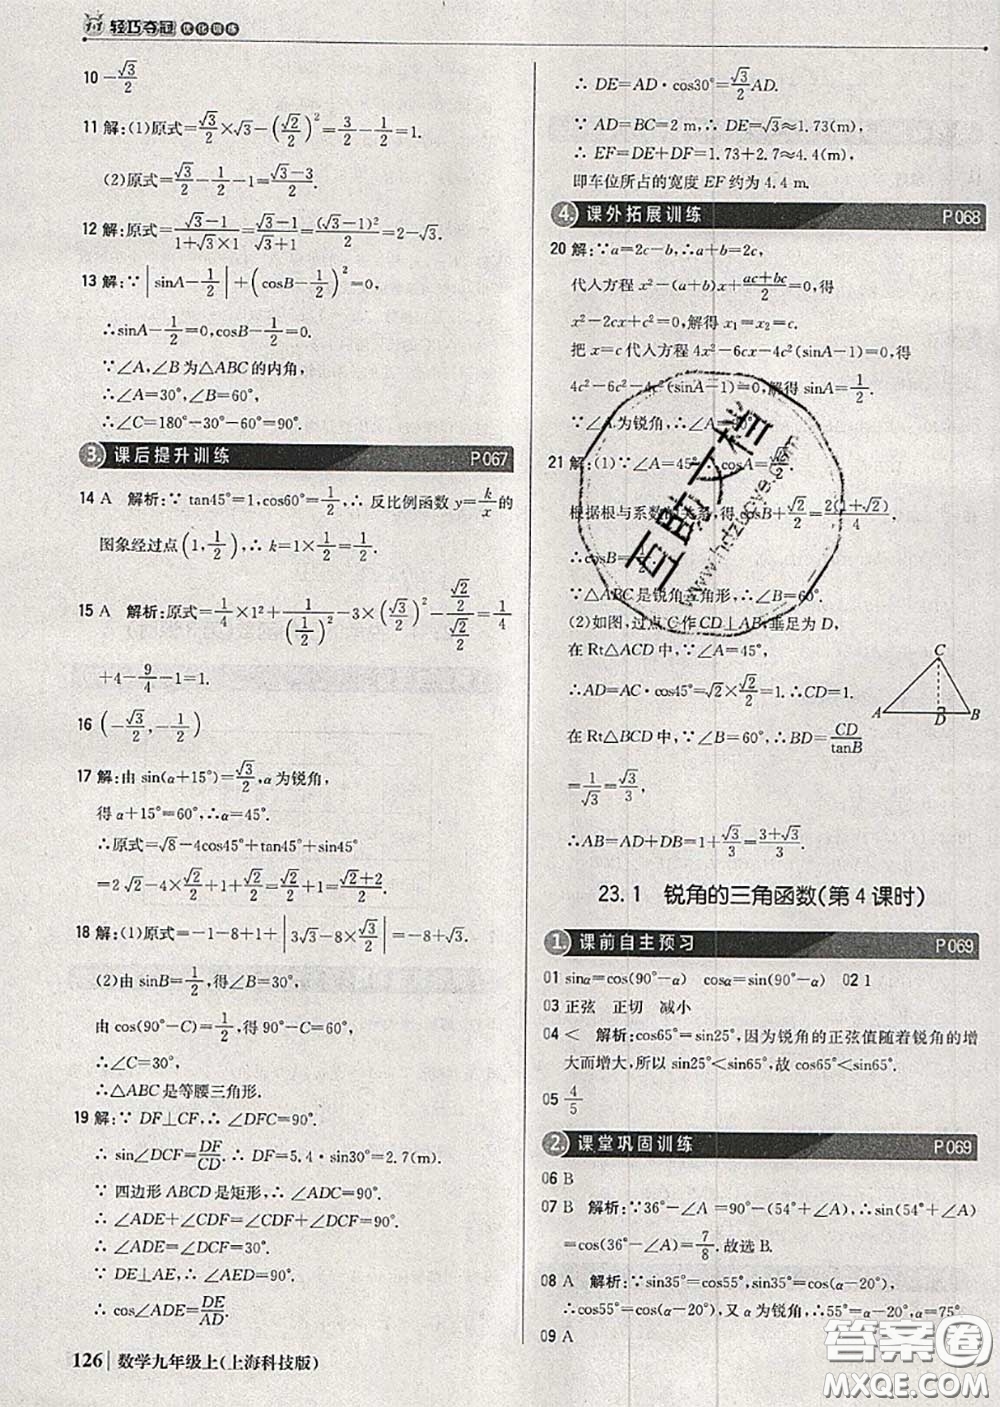 轻巧夺冠 优化训练
10 -√3/2
11 解:(1)原式=√3/2×√3-(√2/2)²=3/2-1/2=1.
(2)原式=√3/2-1/2-1=(√3-3)/2.
12 解:原式=(√3-1)/(1+√3×1)=(√3-1)/(1+√3)=(√3-1)²/2=2-√3.
13 解:∵|sinA-1/2|+(cosB-1/2)²=0,
∴sinA-1/2=0,cosB-1/2=0.
∵∠A,∠B为△ABC的内角,
∴∠A=30°,∠B=60°,
∴∠C=180°-30°-60°=90°.
3. 课后提升训练 P067
14 A 解析:∵tan45°=1,cos60°=1/2,∴反比例函数y=k/x的
图象经过点(1,1/2),∴k=1×1/2=1/2.
15 A 解析:原式=1/4×1²+1/(1/2)²-3×(√3/2)²-(√2/2)/(√2/2)=1/4
+4-9/4-1=1.
16 (-√3/2,-1/2)
17 解:由sin(α+15°)=√3/2,α为锐角,
得α+15°=60°,∴α=45°.
∴原式=√8-4cos45°+tan45°+sin45°
=2√2-4×√2/2+1+√2/2=√2/2+1=(√2+2)/2.
18 解:(1)原式=-1-8+1+|3√3-8×√3/2|=-8+√3.
(2)由sinB=1/2,得∠B=30°,
由cos(90°-C)=1/2,得90°-∠C=60°.
∴∠C=30°,
∴△ABC是等腰三角形.
19 解:∵DF⊥CF,∴∠DFC=90°.
∴sin∠DCF=DF/CD.∴DF=5.4·sin30°=2.7(m).
∵四边形ABCD是矩形,∴∠ADC=90°.
∴∠ADE+∠CDF=∠CDF+∠DCF=90°.
∴∠ADE=∠DCF=30°.
∵DE⊥AE,∴∠AED=90°.
∴cos∠ADE=DE/AD.
126 数学九年级上(上海科技版)
∴DE=AD·cos30°=√3/2AD.
∵AD=BC=2 m,∴DE=√3≈1.73(m)
∴EF=DE+DF=1.73+2.7≈4.4(m),
即车位所占的宽度EF约为4.4 m.
4. 课外拓展训练 P068
20 解:∵a=2c-b,∴a+b=2c,
代入方程x²-(a+b)x+(ac+bc)/2=0,得
x²-2cx+c²=0,解得x₁=x₂=c.
把x=c代入方程4x²-6cx-4c²(sinA-1)=0,得
4c²-6c²-4c²(sinA-1)=0,解得sinA=1/2.
∵∠A为锐角,∴∠A=30°.
21 解:(1)∵∠A=45°,∴cosA=√2/2.
根据根与系数的关系,得cosB+√2/2=2(1+√2)/4,
∴cosB=1/2.
∵△ABC是锐角三角形,∴∠B=60°.
(2)如图,过点C作CD⊥AB,垂足为D,
在Rt△ACD中,∵∠A=45°,
∴AD=AC·cos45°=√2×√2/2=1.∴CD=1.
在Rt△BCD中,∵∠B=60°,∴BD=CD/tanB
=1/√3=√3/3.
∴AB=AD+DB=1+√3/3=(3+√3)/3.
C
A D B
23.1 锐角的三角函数(第4课时)
1. 课前自主预习 P069
01 sinα=cos(90°-α) cosα=sin(90°-α) 02 1
03 正弦 正切 减小
04 < 解析:cos65°=sin25°,因为锐角的正弦值随着锐角的增
大而增大,所以sin25°<sin65°,故cos65°<sin65°.
05 4/5
2. 课堂巩固训练 P069
06 B
07 B 解析:∵36°-∠A=90°-(54°+∠A),∴sin(54°+∠A)
=cos(36°-∠A)=7/8.故选B.
08 A 解析:∵sin35°=cos55°,sin35°=cos(α-20°),
∴cos55°=cos(α-20°),又α为锐角,∴55°=α-20°,α=75°.
09 A
互助文档
www.hdzuoye.com
答案圈
MXQE.COM